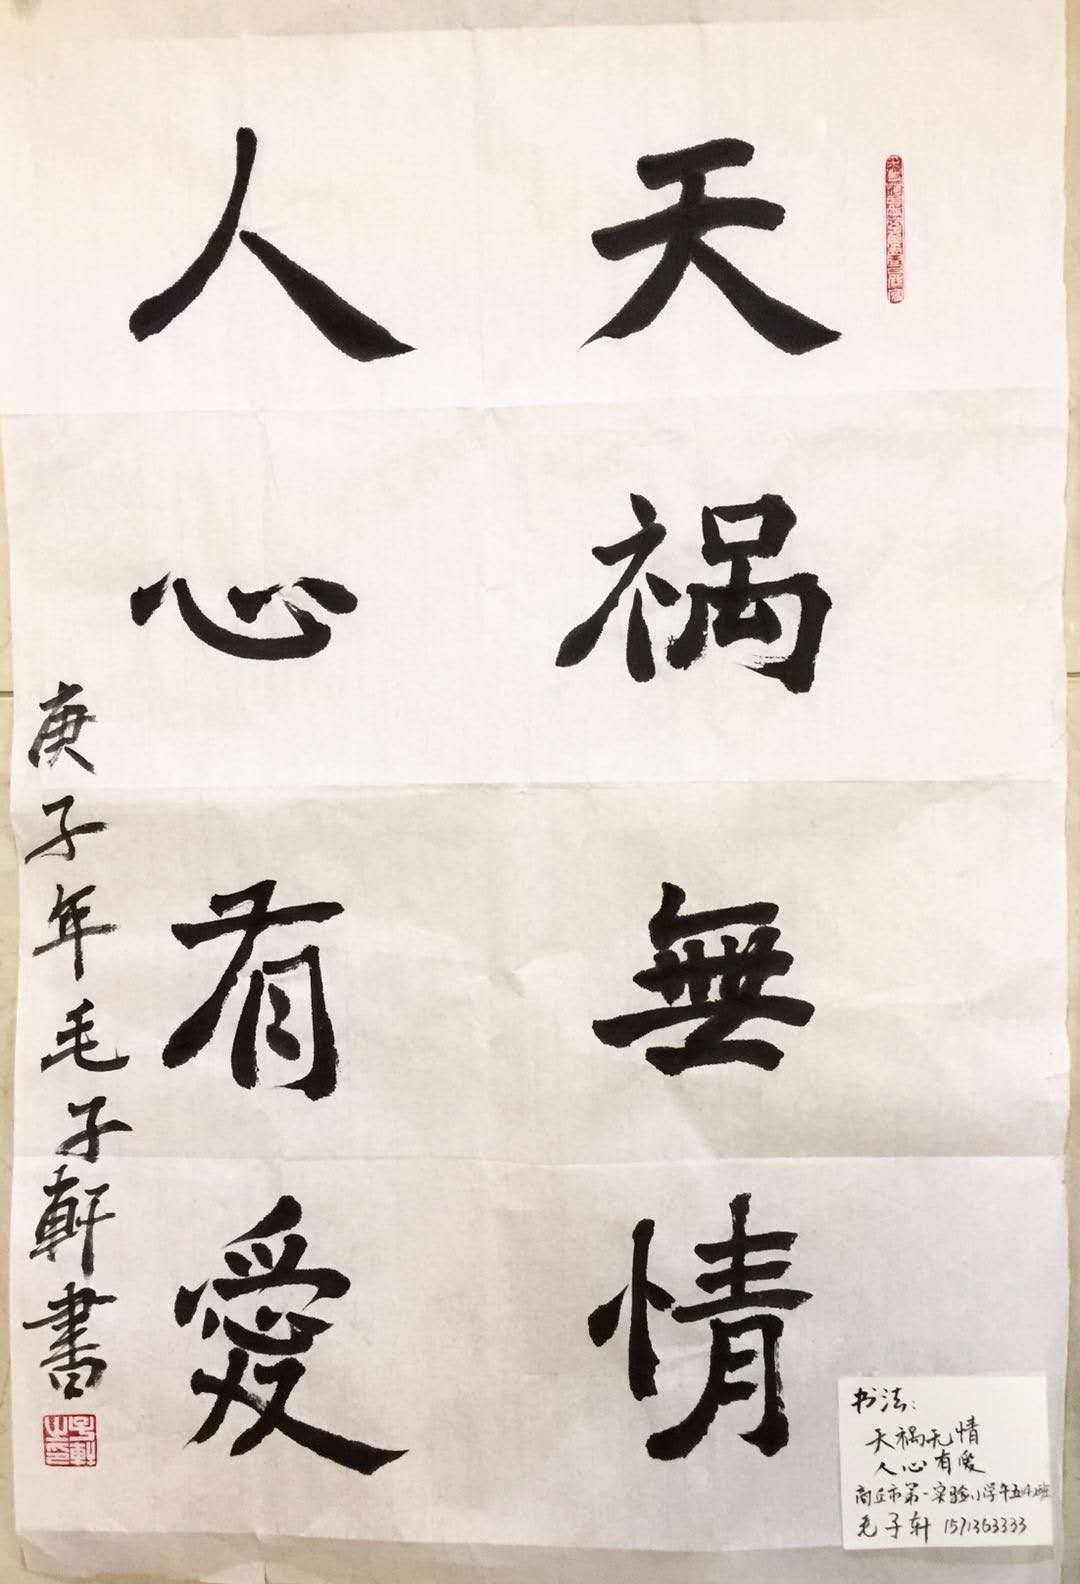 天祸無情
人心有愛
庚子年毛子軒書
子軒之印
书法:
天祸无情
人心有爱
商丘市第一实验小学
毛子轩 1571363333